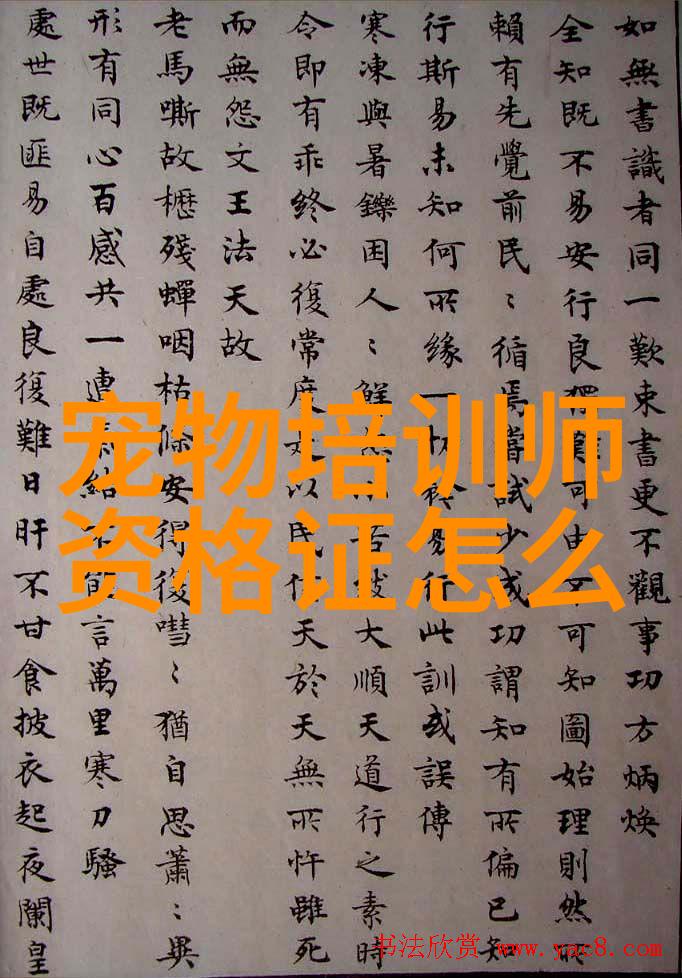 如無書識者同一歎束書更不觀事功方炳煥
全知既不易安行良可由不可知圖始理則然所
賴有先覺前民〻循焉嘗試少成功謂知有所偏已知
行斯易未知何所緣一切易行此訓或誤傳
寒凍與暑鑠困人〻鮮大順天道行之素時
令即有乖終必復常度是以民信天於天無所忤雖死
而無怨文王法天故
老馬嘶故櫪殘蟬咽枯條安得復嘒〻猶自思蕭〻異
形有同心百感共一結不能言萬里寒刀騷
處世既匪易自處良復難日旰不甘食披衣起夜闌皇
宠物培训师
资格证怎么
书法欣赏 www.yac8.com